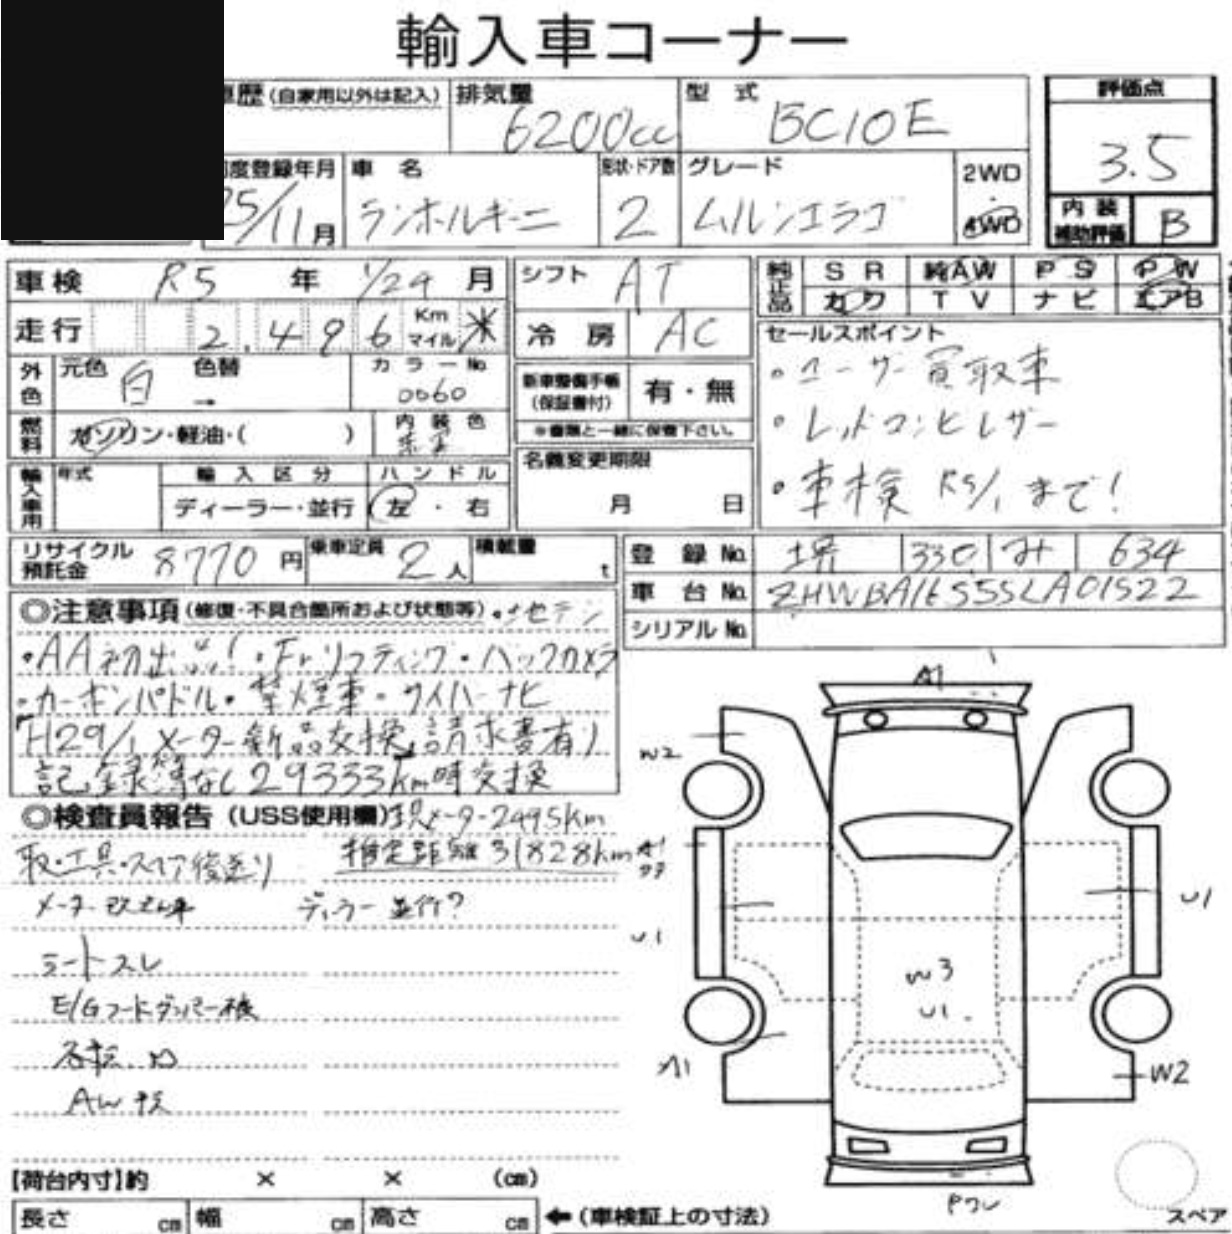 輸入車コーナー
車歴 (自家用以外は記入) 排気量 6200cc 型式 BC10E 評価点 3.5
初度登録年月 25/11月 車名 ランボルギーニ 形状・ドア数 2 グレード ムルシエラゴ 2WD 4WD 内装補助評価 B
車検 R5 年 1/24 月 シフト AT 純正品 SR 純AW PS PW
カワ TV ナビ エアB
走行 2,496 Km マイル ※ 冷房 AC セールスポイント
外色 元色 白 色替 → カラーNo. 0060 新車整備手帳 (保証書付) 有・無 ・ユーザー買取車
燃料 ガソリン・軽油・( ) 内装色 ※書類と一緒に保管下さい。 ・レッドコンビレザー
輸入車用 年式 輸入区分 ハンドル 名義変更期限 ・車検 R5/1まで!
ディーラー・並行 左・右 月 日
リサイクル預託金 8770円 乗車定員 2人 積載量 t 登録No. 堺 330 み 634
車台No. ZHWBA16S5SLA01522
◎注意事項 (修復・不具合箇所および状態等) シリアルNo.
・AA初出品!・Frリフティング・バックカメラ
・カーボンパドル・禁煙車・サイバーナビ
「H29/1 メーター新品交換、請求書有り
記録簿なし 29333km時交換
◎検査員報告 (USS使用欄) 現メーター2495km
取・工具・スペア後送り 推定距離31828km
メーター改ざん車 ディーラー並行?
シートスレ
E/Gフードダンパー
石転
AW
A1
W2
A1
U1
U1
W3
U1
A1
W2
【荷台内寸】約 × × (cm)
長さ cm 幅 cm 高さ cm ←(車検証上の寸法) スペア